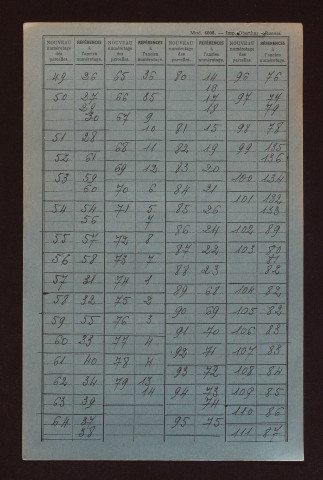 NOUVEAU numérotage des parcelles. RÉFÉRENCES à l'ancien numérotage. NOUVEAU numérotage des parcelles. RÉFÉRENCES à l'ancien numérotage. NOUVEAU numérotage des parcelles. RÉFÉRENCES à l'ancien numérotage. NOUVEAU numérotage des parcelles. RÉFÉRENCES à l'ancien numérotage.
49 26
50 27
29
30
51 28
52 61
53 59
60
54 54
56
55 57
56 58
57 31
58 32
59 55
60 33
61 40
62 34
63 39
64 37
38
65 36
66 35
67 9
10
68 11
69 12
70 6
71 5
7
72 8
73 7
74 1
75 2
76 3
77 4
78 4
79 13
14
80 14
16
17
18
81 15
82 19
83 20
84 21
85 26
86 24
87 22
88 23
89 68
90 69
91 70
92 71
93 72
94 73
74
95 75
96 76
97 77
79
98 78
99 135
136
100 134
101 132
133
102 89
103 80
81
82
104 82
105 82
106 83
107 83
108 84
109 85
110 86
111 87